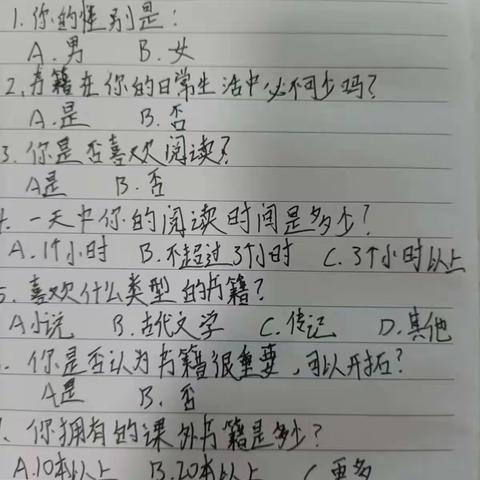 1.你的性别是:
A.男 B.女
2.书籍在你的日常生活中必不可少吗?
A.是 B.否
3.你是否喜欢阅读?
A是 B.否
4.一天中你的阅读时间是多少?
A.1个小时 B.不超过3个小时 C.3个小时以上
5.喜欢什么类型的书籍?
A小说 B.古代文学 C.传记 D.其他
.你是否认为书籍很重要,可以开拓?
A是 B.否
.你拥有的课外书籍是多少?
A.10本以上 B.20本以上 C更多